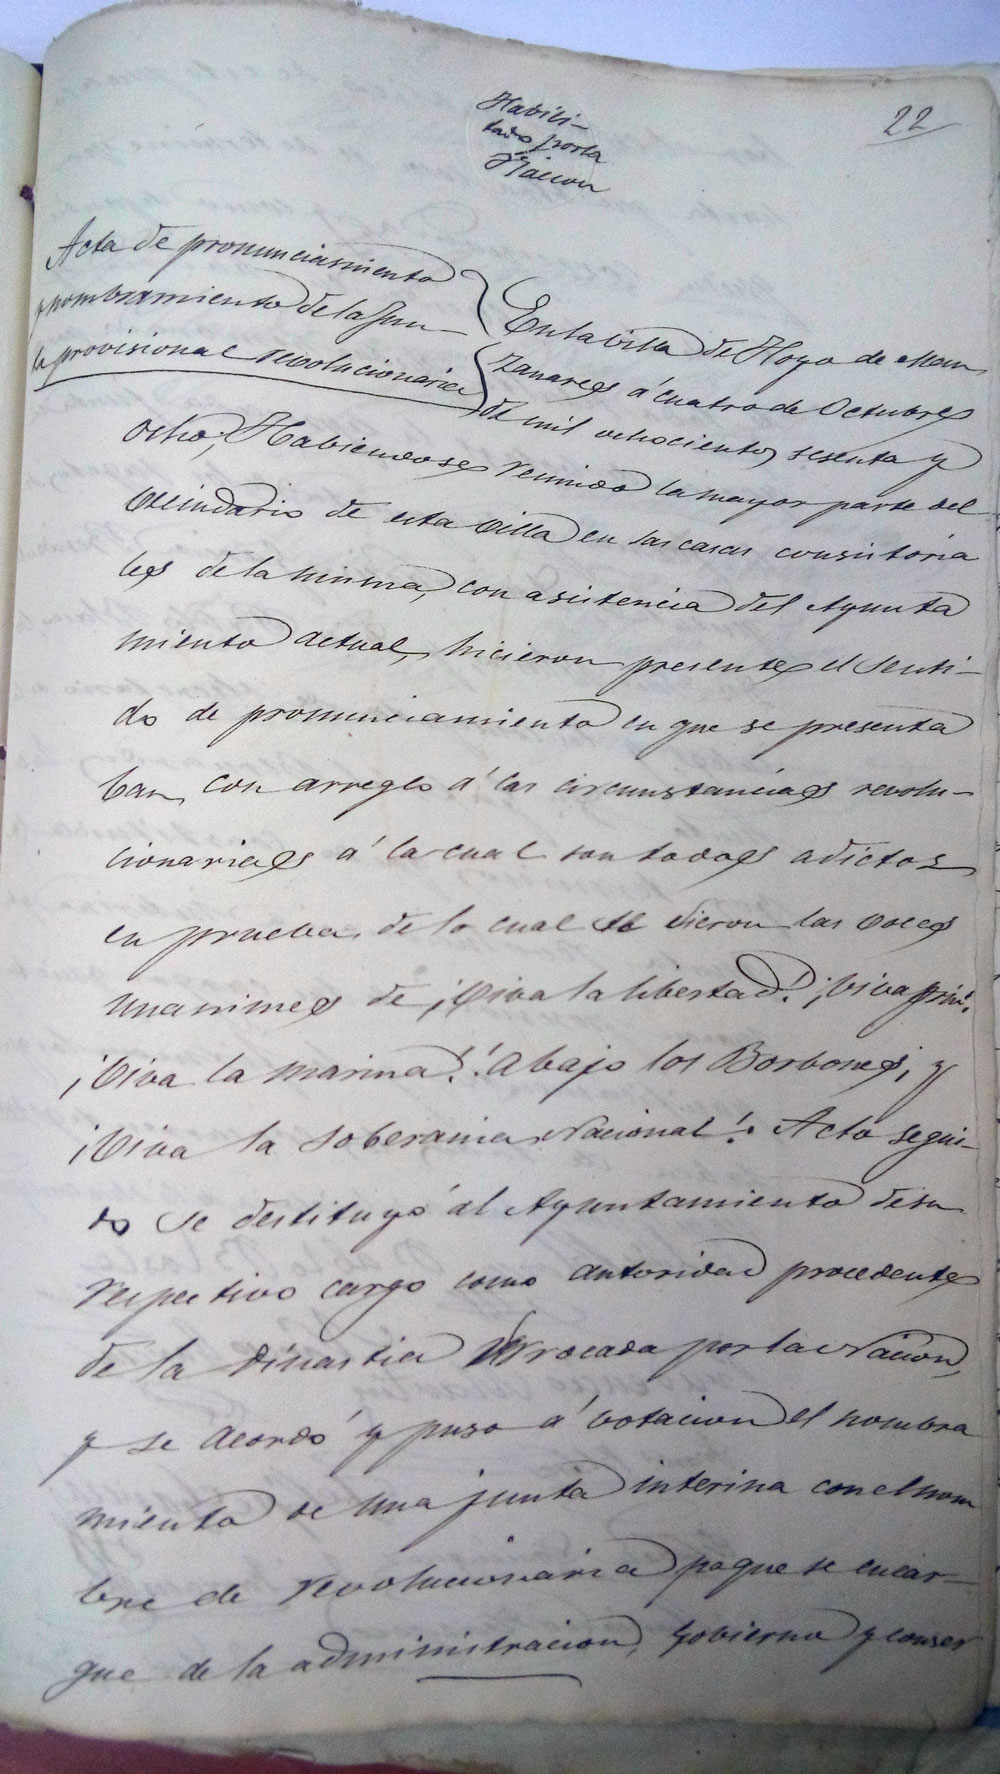 22
Habili-
tado por la
Nacion
Acta de pronunciamiento
y nombramiento de la Jun
ta provisional revolucionaria
En la villa de Hoyo de Man
zanares á cuatro de Octubre
de mil ochocientos sesenta y
ocho; Habiendose reunido la mayor parte del
vecindario de esta villa en las casas consistoria
les de la misma, con asistencia del Ayunta
miento actual, hicieron presente el senti-
do de pronunciamiento en que se presenta
ban, con arreglo á las circunstancias revolu-
cionarias á la cual son todos adictos
en prueba de lo cual dieron las voces
unanimes de ¡Viva la libertad! ¡Viva Prim!
¡Viva la marina! ! Abajo los Borbones, y
¡Viva la soberania Nacional! Acto segui-
do se destituyó al Ayuntamiento de su
respectivo cargo como autoridad procedente
de la Dinastia derrocada por la Nacion,
y se acordó y puso á votacion el nombra
miento de una junta interina con el nom
bre de revolucionaria pa que se encar-
gue de la administracion, Gobierno y conser